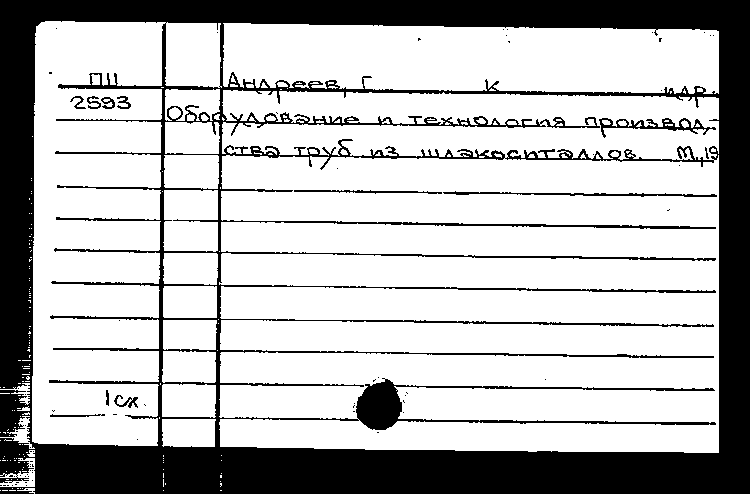 ПII Андреев, Г К идр.
2593 Оборудование и технология производ-
ства труб из шлакоситаллов. М.,19
1сх.